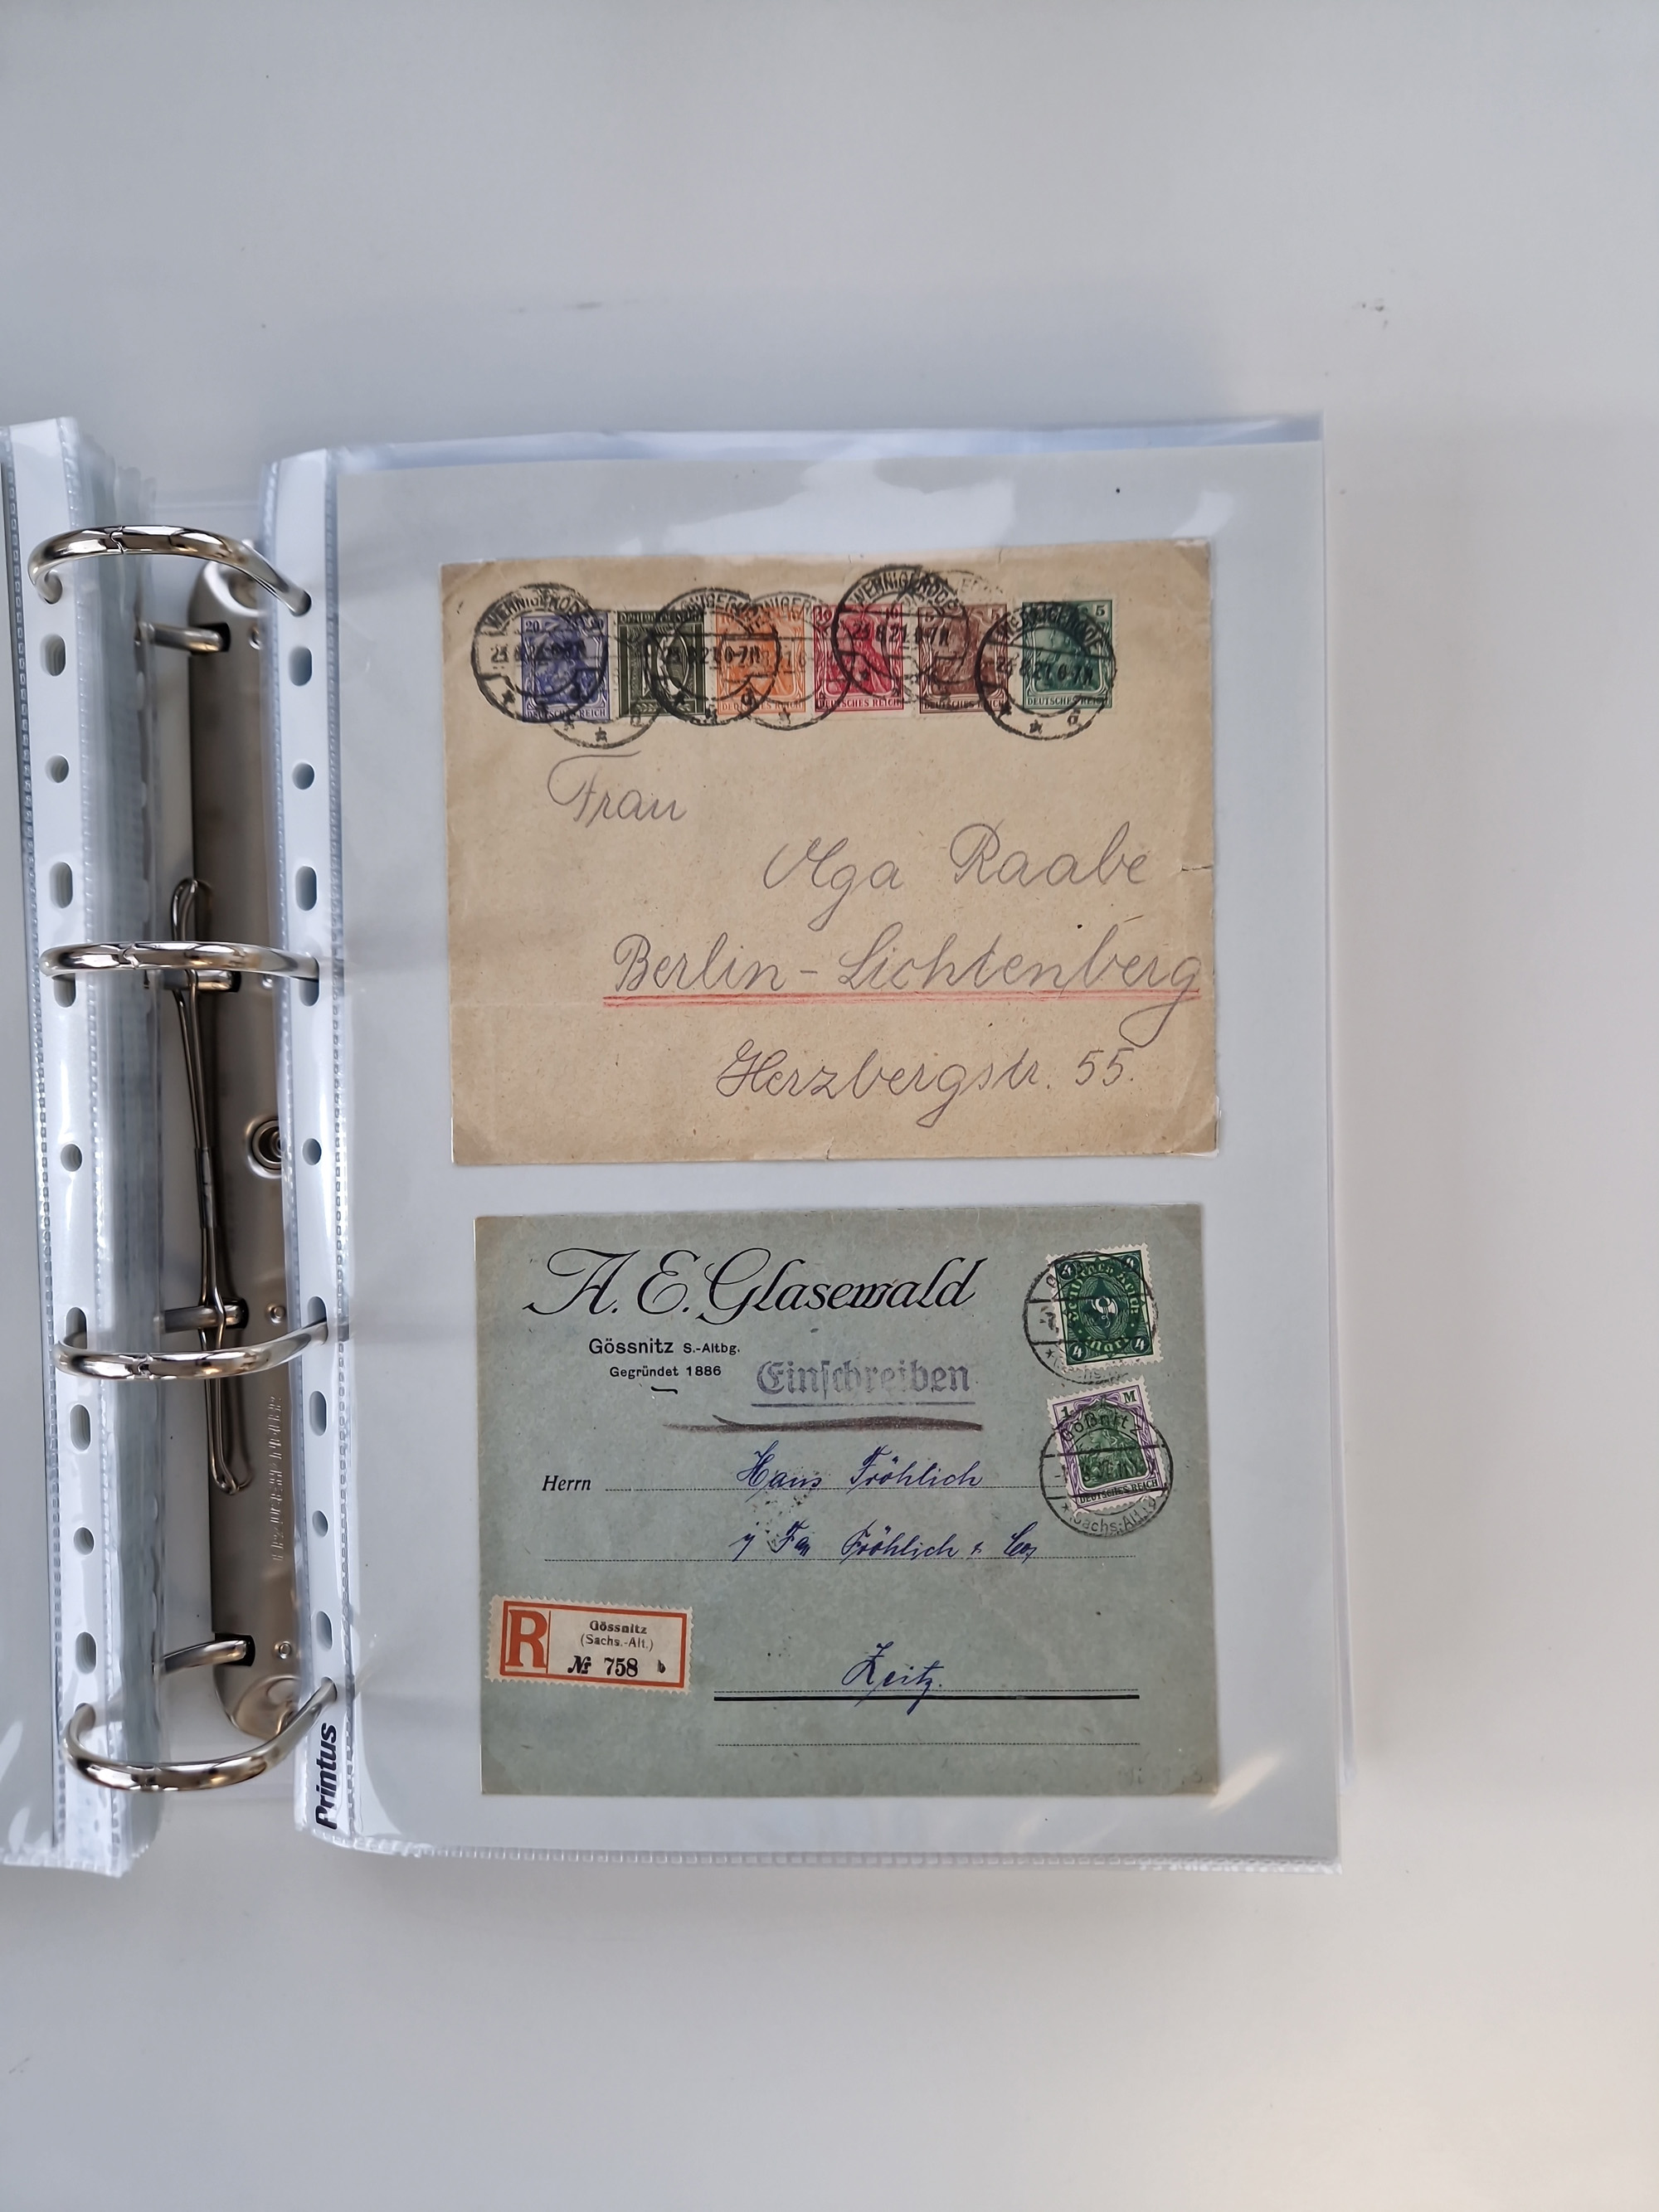 WERNIGERODE
20
DEUTSCHES REICH
10 10
DEUTSCHES REICH
DEUTSCHES REICH
5
DEUTSCHES REICH
Frau
Olga Raabe
Berlin-Lichtenberg
Herzbergstr. 55.
A. E. Glasewald
Gössnitz S.-Altbg.
Gegründet 1886
Einschreiben
4 4
1 M
Gößnitz
DEUTSCHES REICH
(Sachs.-Alt.)
Herrn Hans Fröhlich
Fröhlich & Co
R
Gössnitz
(Sachs.-Alt.)
№ 758 b
Zeitz.
Printus